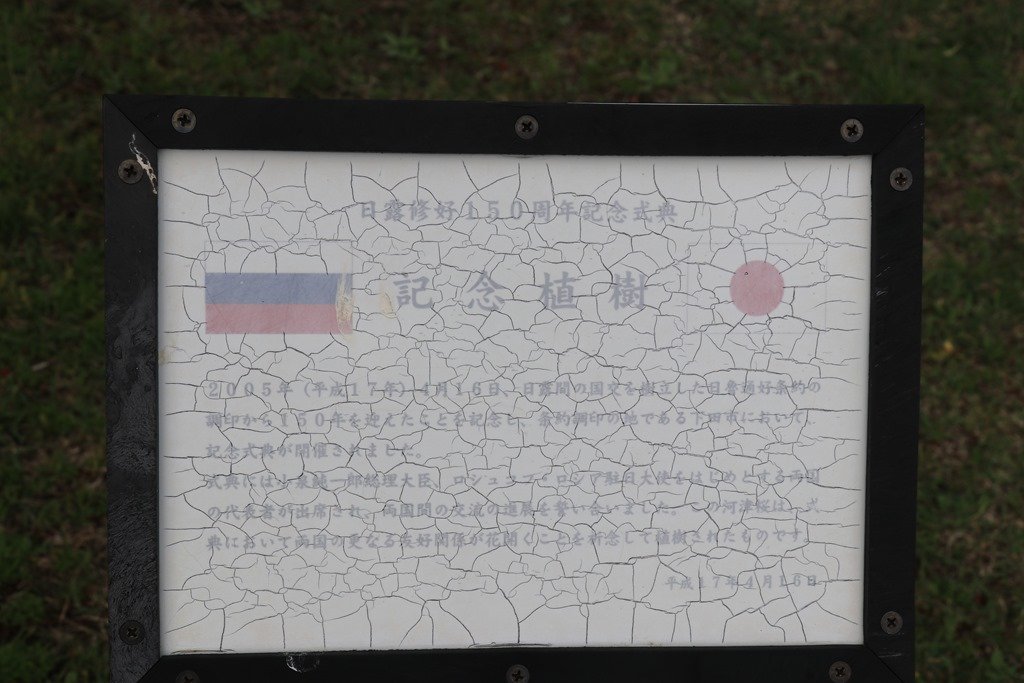 日露修好１５０周年記念式典
記念植樹
２００５年（平成１７年）４月１６日、日露間の国交を樹立した日魯通好条約の
調印から１５０年を迎えたことを記念し、条約調印の地である下田市において、
記念式典が開催されました。
式典には小泉純一郎総理大臣、ロシュコフ・ロシア駐日大使をはじめとする両国
の代表者が出席され、両国間の交流の進展を誓い合いました。この河津桜は、式
典において両国の更なる友好関係が花開くことを祈念して植樹されたものです。
平成１７年４月１６日